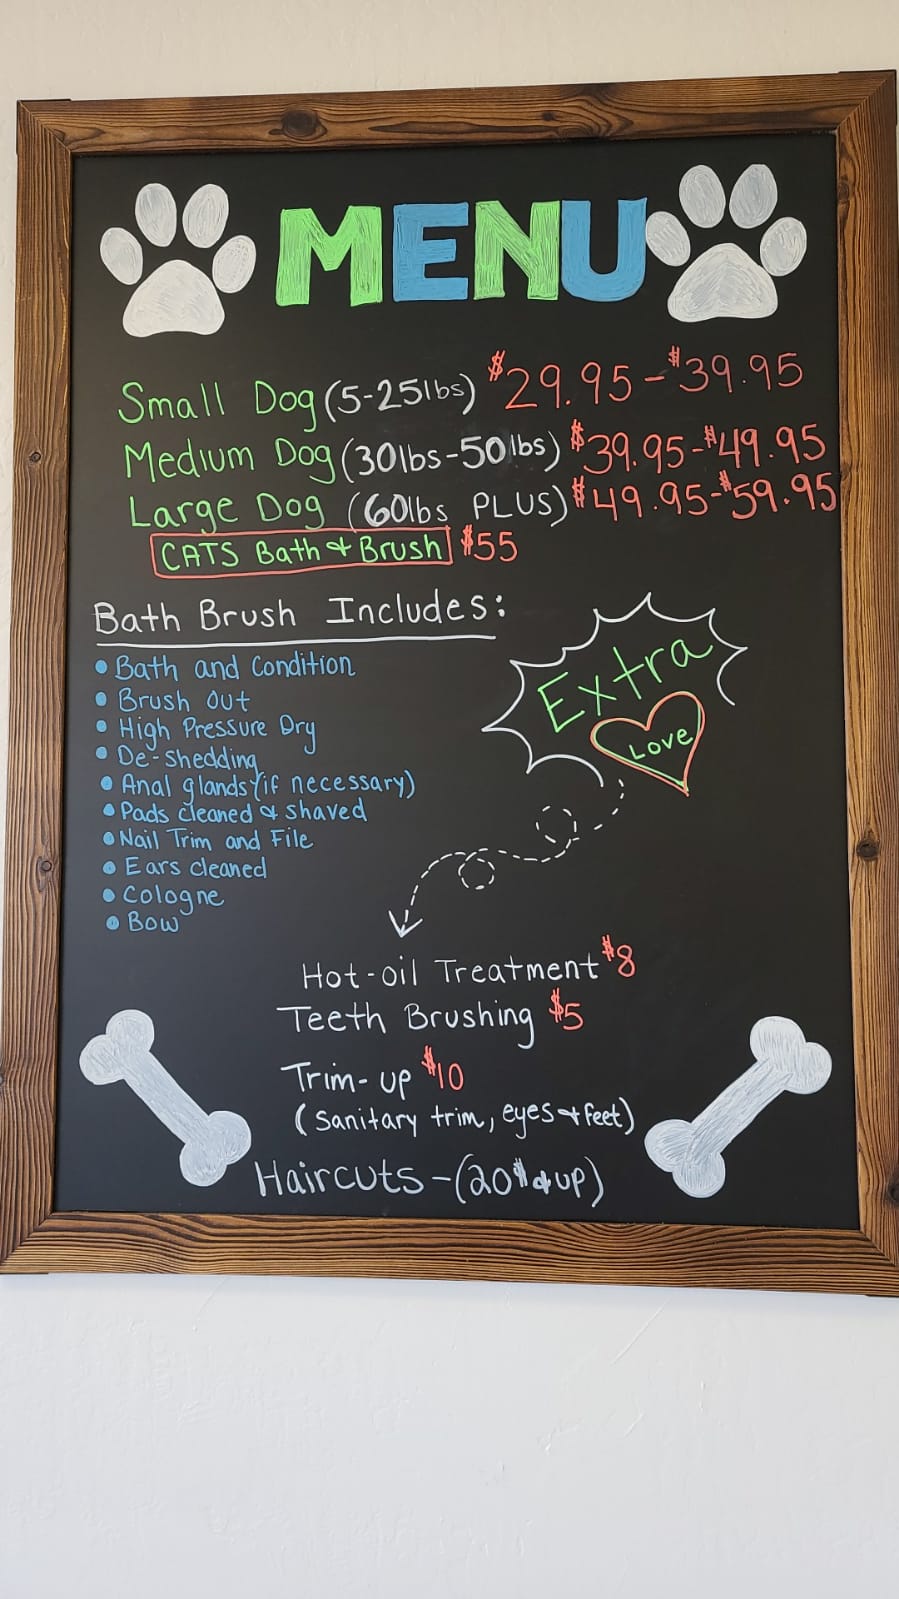 MENU
Small Dog (5-25lbs) $29.95-$39.95
Medium Dog (30lbs-50lbs) $39.95-$49.95
Large Dog (60lbs PLUS) $49.95-$59.95
CATS Bath & Brush $55
Bath Brush Includes:
• Bath and Condition
• Brush Out
• High Pressure Dry
• De-Shedding
• Anal glands (if necessary)
• Pads cleaned & shaved
• Nail Trim and File
• Ears cleaned
• Cologne
• Bow
Extra
Love
Hot-oil Treatment $8
Teeth Brushing $5
Trim-up $10
(Sanitary trim, eyes & feet)
Haircuts-(20$ & up)